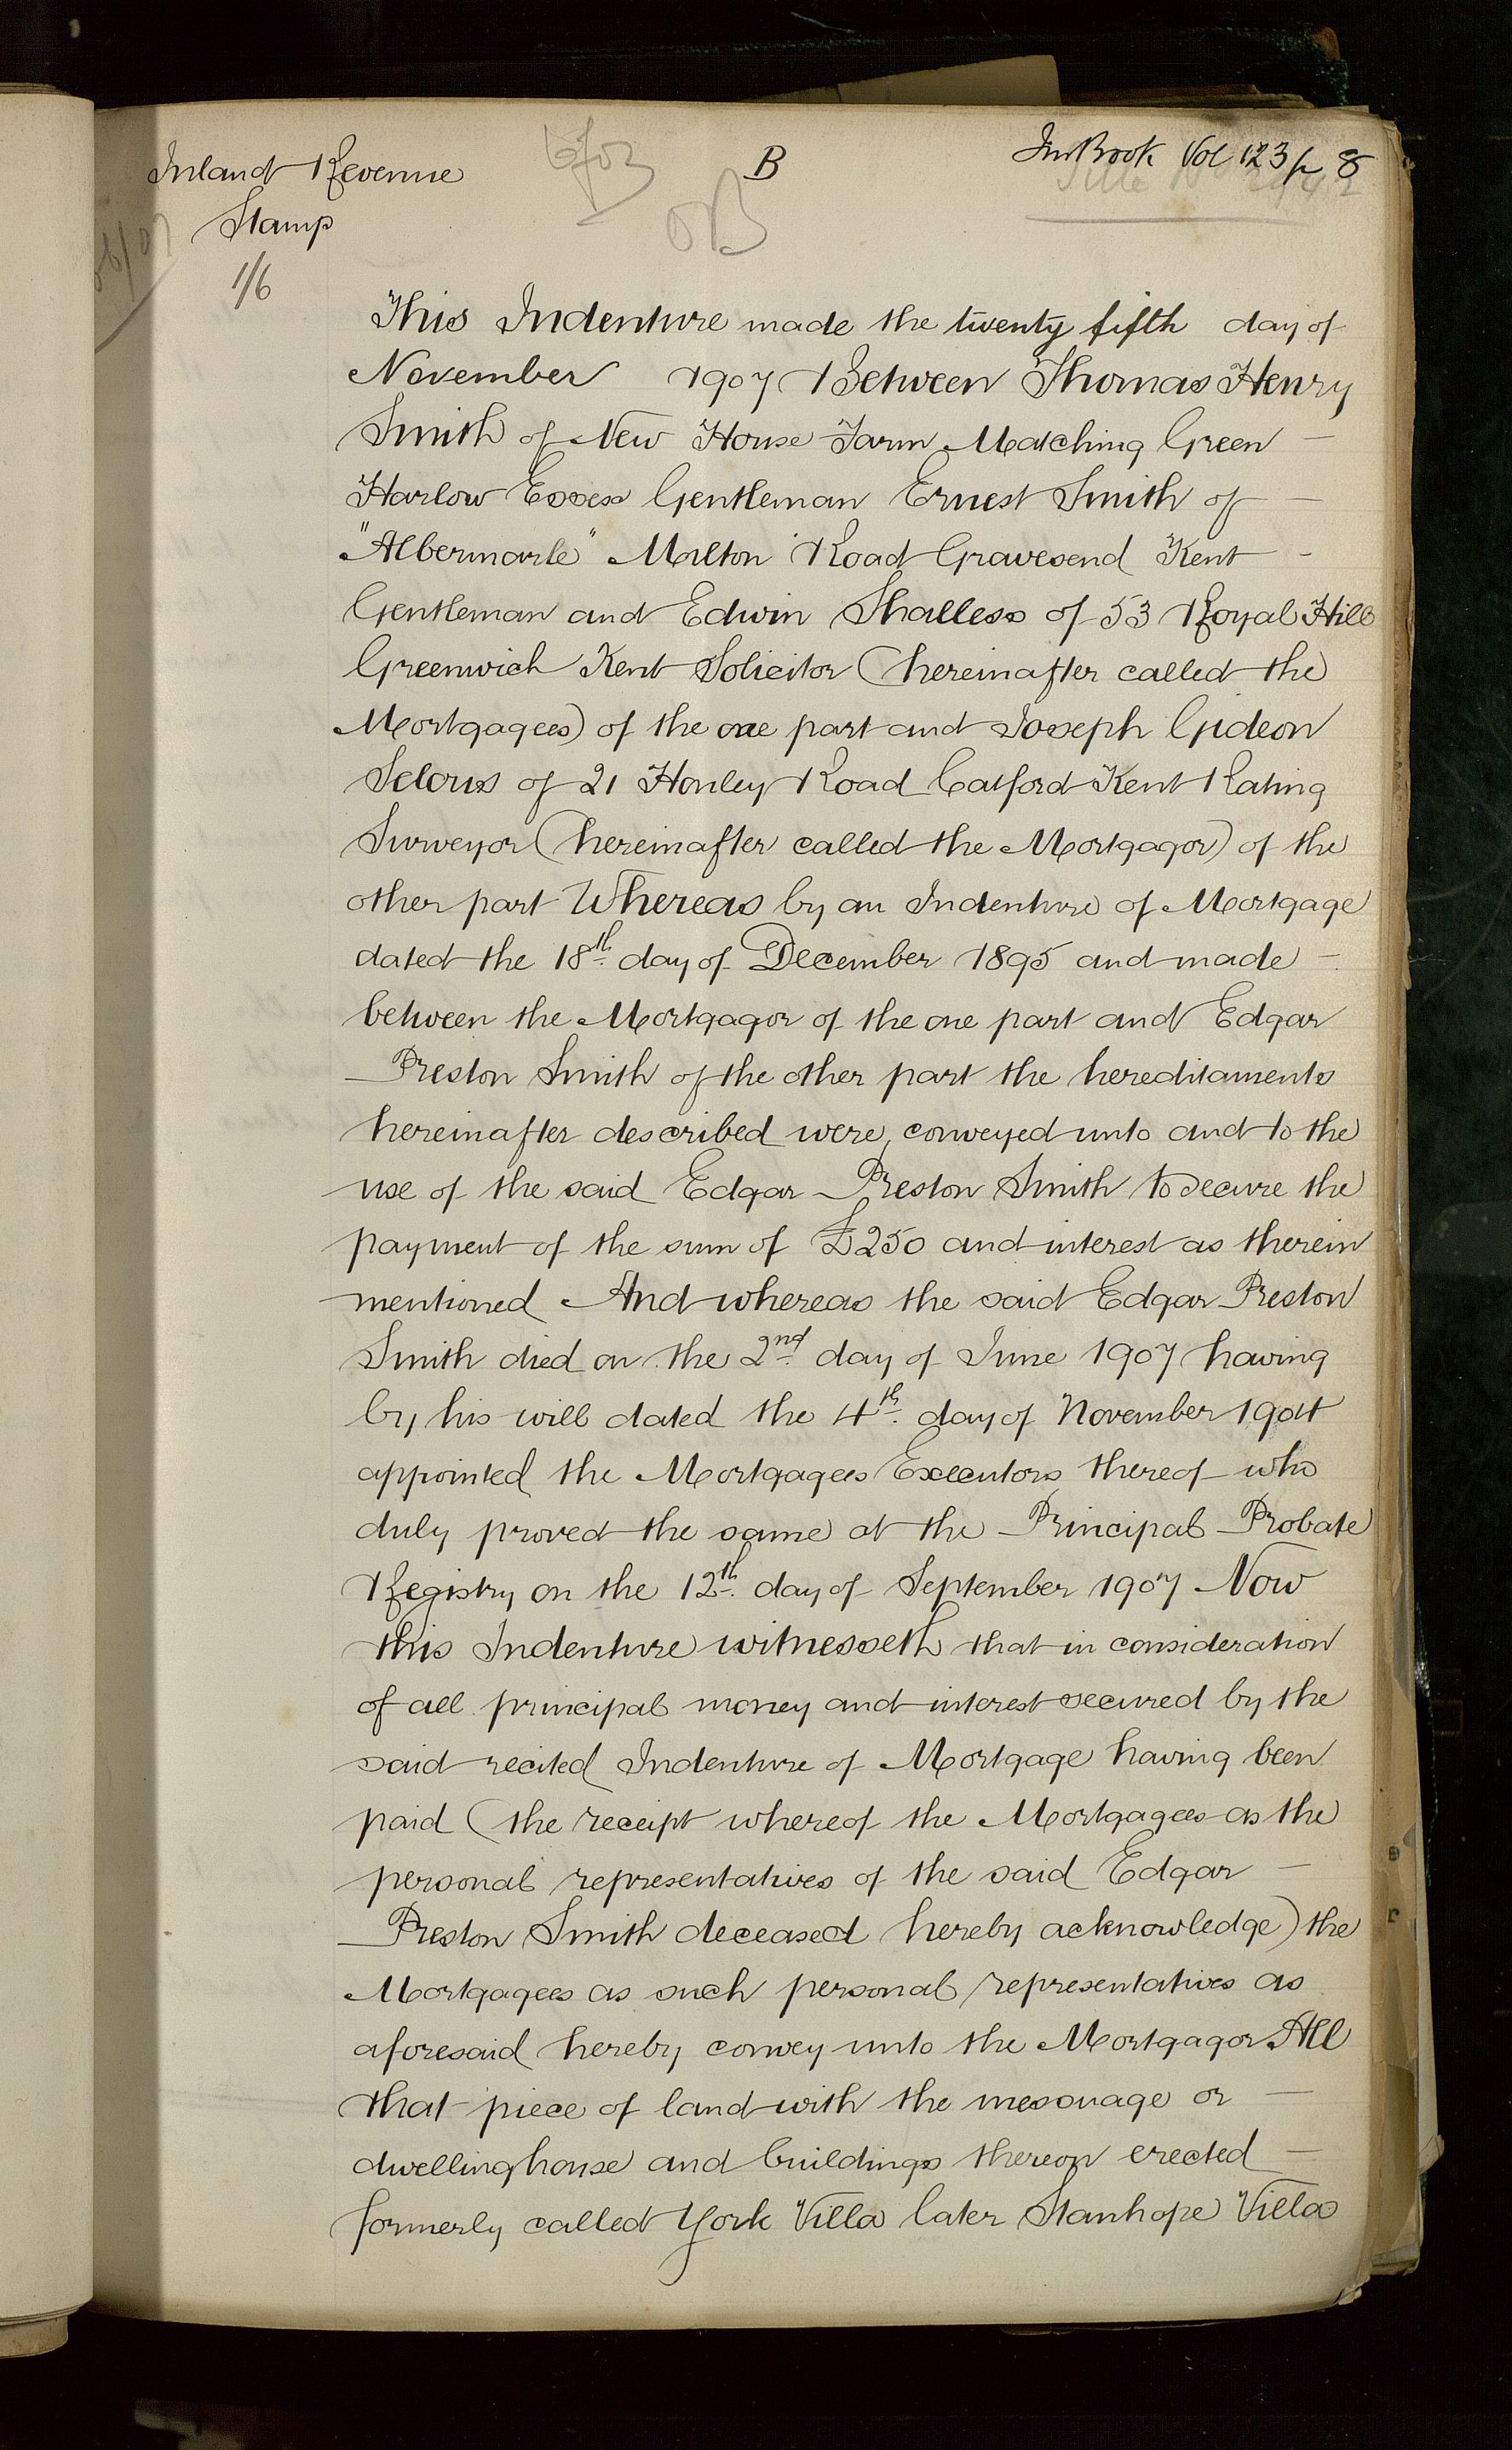 Inland Revenue
Stamp
1/6
B
In Book Vol 123 p 8
OB
This Indenture made the twenty fifth day of
November 1907 Between Thomas Henry
Smith of New House Farm Matching Green
Harlow Essex Gentleman Ernest Smith of
"Albermarle" Milton Road Gravesend Kent
Gentleman and Edwin Shalless of 53 Royal Hill
Greenwich Kent Solicitor (hereinafter called the
Mortgagees) of the one part and Joseph Gideon
Selous of 21 Honley Road Catford Kent Rating
Surveyor (hereinafter called the Mortgagor) of the
other part Whereas by an Indenture of Mortgage
dated the 18th day of December 1895 and made
between the Mortgagor of the one part and Edgar
Preston Smith of the other part the hereditaments
hereinafter described were conveyed unto and to the
use of the said Edgar Preston Smith to secure the
payment of the sum of £250 and interest as therein
mentioned And whereas the said Edgar Preston
Smith died on the 2nd day of June 1907 having
by his will dated the 4th day of November 1904
appointed the Mortgagees Executors thereof who
duly proved the same at the Principal Probate
Registry on the 12th day of September 1907 Now
this Indenture witnesseth that in consideration
of all principal money and interest secured by the
said recited Indenture of Mortgage having been
paid (the receipt whereof the Mortgagees as the
personal representatives of the said Edgar
Preston Smith deceased hereby acknowledge) the
Mortgagees as such personal representatives as
aforesaid hereby convey unto the Mortgagor All
that piece of land with the messuage or
dwellinghouse and buildings thereon erected
formerly called York Villa later Stanhope Villa